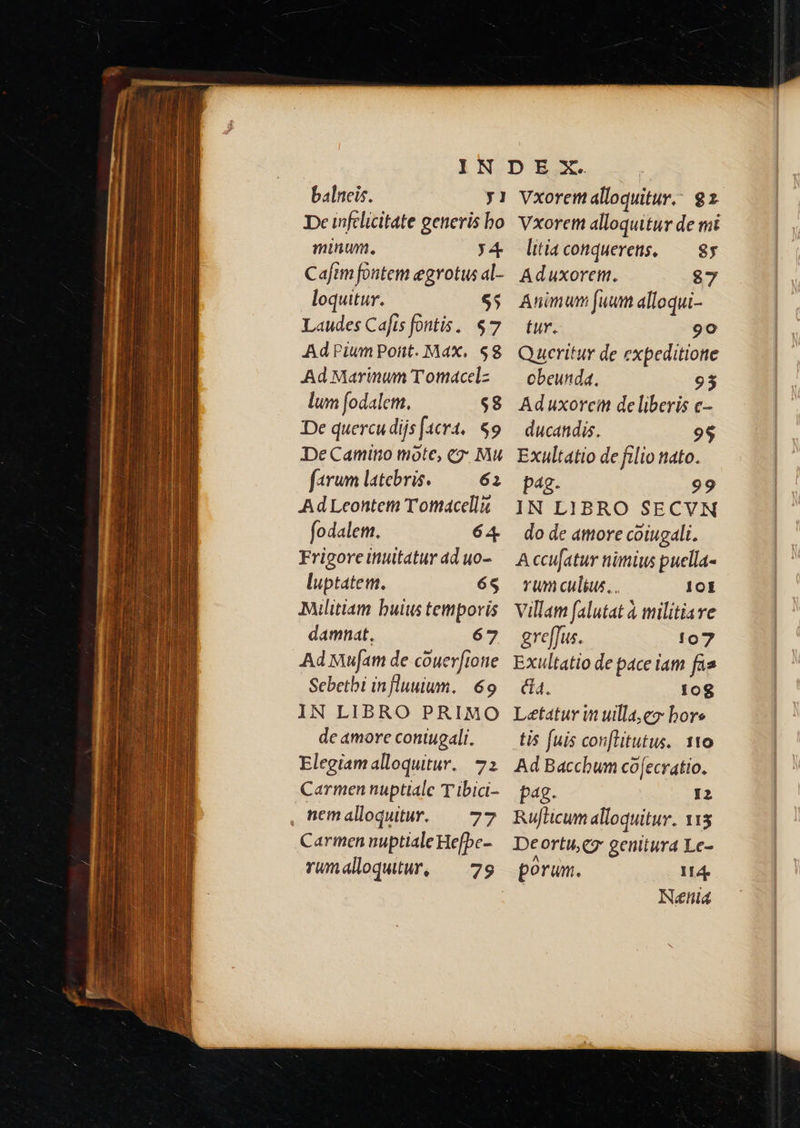 INDEX.
balneis. 51
De infelicitate generis ho
minum. 54
Casim fontem egrotus al-
loquitur. 55
Laudes Casis fontis. 57
Ad Pium Pont. Max. 58
Ad Marinum Tomacel-
lum sodalem. 58
De quercu dijs sacra. 59
De Camino mōte, & Mu
sarum latebris. 62
Ad Leontem Tomacellū
sodalem. 64
Frigore inuitatur ad uo-
luptatem. 65
Militiam huius temporis
damnat. 67
Ad Musam de cōuersione
Sebethi in fluuium. 69
IN LIBRO PRIMO
de amore coniugali.
Elegiam alloquitur. 72
Carmen nuptiale Tibici-
nem alloquitur. 77
Carmen nuptiale Hespe-
rum alloquitur, 79
Vxorem alloquitur. 82
Vxorem alloquitur de mi
litia conquerens. 85
Ad uxorem. 87
Animum suum alloqui-
tur. 90
Queritur de expeditione
obeunda. 93
Ad uxorem de liberis e-
ducandis. 95
Exultatio de filio nato.
pag. 99
IN LIBRO SECVN
do de amore cōiugali.
Accusatur nimius puella-
rum cultus.. 101
Villam salutat à militia re
gressus. 107
Exultatio de pace iam fa-
cta. 108
Lætatur in uilla, & hor-
tis suis constitutus. 110
Ad Bacchum cōsecratio.
pag. 12
Rusticum alloquitur. 113
De ortu, & genitura Le-
porum. 114
Nænia